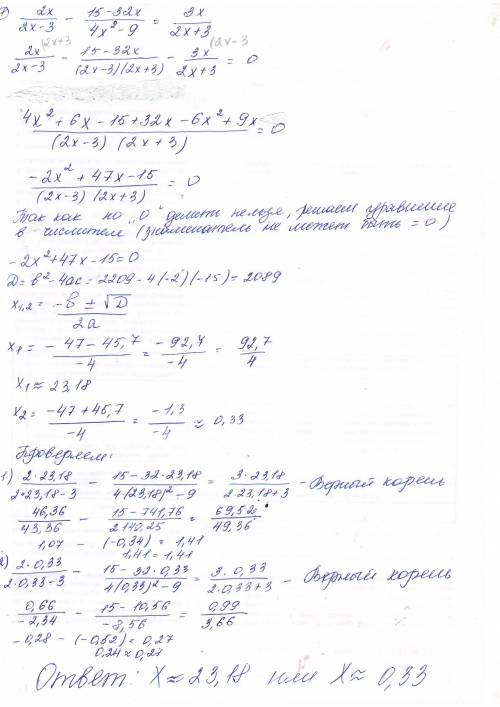 7) 2x/(2x-3) - (15-32x)/(4x²-9) = 3x/(2x+3)
2x(2x+3/(2x-3) - (15-32x)/((2x-3)(2x+3)) - 3x(2x-3/(2x+3) = 0
(4x²+6x-15+32x-6x²+9x)/((2x-3)(2x+3)) = 0
(-2x²+47x-15)/((2x-3)(2x+3)) = 0
Так как на "0" делить нельзя, решаем уравнение
в числителе (знаменатель не может быть = 0)
-2x²+47x-15=0
D=b²-4ac=2209-4(-2)(-15)=2089
x1,2 = (-b ± √D)/2a
x1 = (-47-45,7)/-4 = -92,7/-4 = 92,7/4
x1 ≈ 23,18
x2 = (-47+45,7)/-4 = -1,3/-4 ≈ 0,33
Проверяем:
1) (2·23,18)/(2·23,18-3) - (15-32·23,18)/(4(23,18)²-9) = (3·23,18)/(2·23,18+3) - Верный корень
46,36/43,36 - (15-741,76)/2140,25 = 69,52/49,36
1,07 - (-0,34) = 1,41
1,41 = 1,41
2) (2·0,33)/(2·0,33-3) - (15-32·0,33)/(4(0,33)²-9) = (3·0,33)/(2·0,33+3) - Верный корень
0,66/-2,34 - (15-10,56)/-8,56 = 0,99/3,66
-0,28 - (-0,52) = 0,27
0,24 ≈ 0,27
Ответ: X ≈ 23,18 или X ≈ 0,33